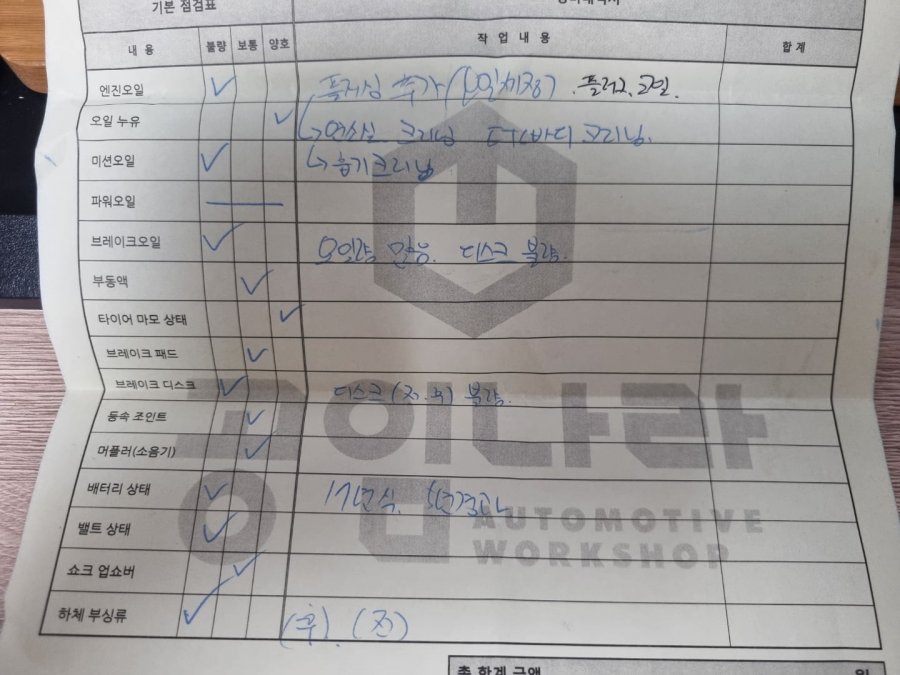 기본 점검표
내 용 불량 보통 양호 작 업 내 용 합 계
엔진오일 플러싱 추가 (오일세정) .플러그, 코일.
오일 누유 →연소실 크리닝 ETC바디 크리닝.
미션오일 →흡기크리닝
파워오일
브레이크오일 오일량 많음. 디스크 불량.
부동액
타이어 마모 상태
브레이크 패드
브레이크 디스크 디스크 (전.후) 불량.
등속 조인트
머플러(소음기)
배터리 상태 17년식. 5년경과
밸트 상태
쇼크 업쇼버
하체 부싱류 (후). (전)
공임나라
AUTOMOTIVE
WORKSHOP
총 합계 금액 원